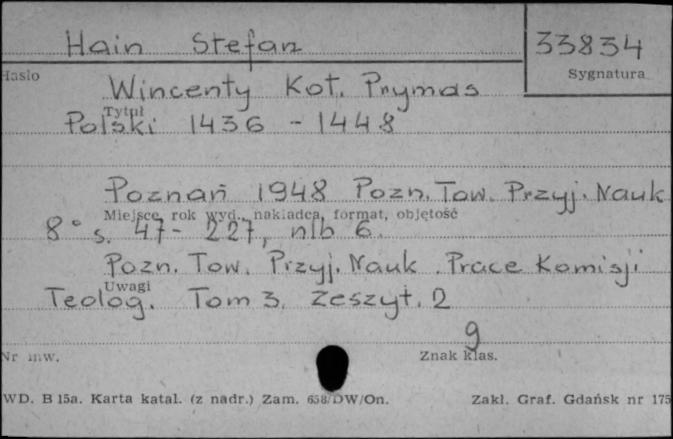 Hain Stefan 33834
Hasło Sygnatura
Wincenty Kot. Prymas
Tytuł
Polski 1436 - 1448
Poznań 1948 Pozn. Tow. Przyj. Nauk
Miejsce, rok wyd., nakładca, format, objętość
8° s. 47 - 227, nlb 6.
Pozn. Tow. Przyj. Nauk. Prace Komisji
Uwagi
Teolog. Tom 3. Zeszyt. 2
9
Nr inw. Znak klas.
WD. B 15a. Karta katal. (z nadr.) Zam. 658/DW/On. Zakl. Graf. Gdańsk nr 175